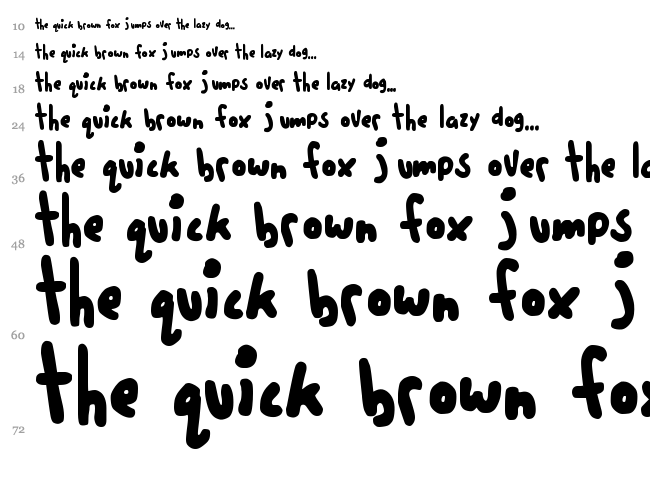 10 the quick brown fox jumps over the lazy dog...
14 the quick brown fox jumps over the lazy dog...
18 the quick brown fox jumps over the lazy dog...
24 the quick brown fox jumps over the lazy dog...
36 the quick brown fox jumps over the la
48 the quick brown fox jumps
60 the quick brown fox j
72 the quick brown fox